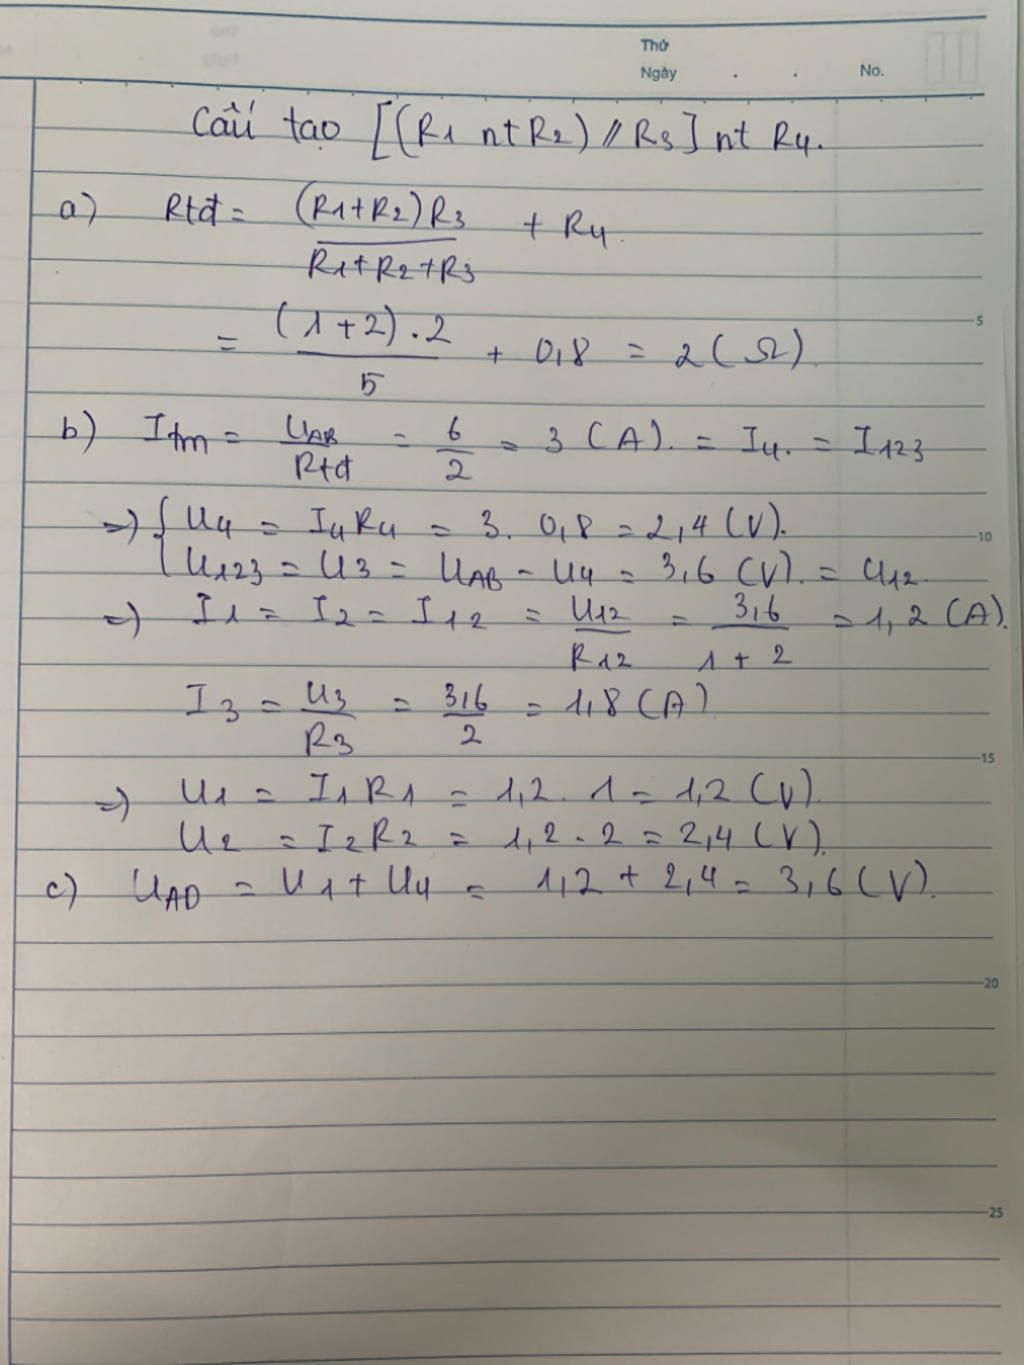 Thứ
Ngày . . No.
Cấu tạo [(R1 nt R2) // R3] nt R4.
a) Rtđ = (R1+R2)R3 / R1+R2+R3 + R4.
= (1+2).2 / 5 + 0,8 = 2 (Ω).
5
b) Itm = UAB / Rtđ = 6/2 = 3 (A). = I4. = I123
=) { U4 = I4R4 = 3. 0,8 = 2,4 (V).
10
U123 = U3 = UAB - U4 = 3,6 (V). = U12.
=) I1 = I2 = I12 = U12 / R12 = 3,6 / 1+2 = 1,2 (A).
I3 = U3 / R3 = 3,6 / 2 = 1,8 (A)
15
=) U1 = I1R1 = 1,2. 1 = 1,2 (V).
U2 = I2R2 = 1,2. 2 = 2,4 (V).
c) UAD = U1 + U4 = 1,2 + 2,4 = 3,6 (V).
20
25